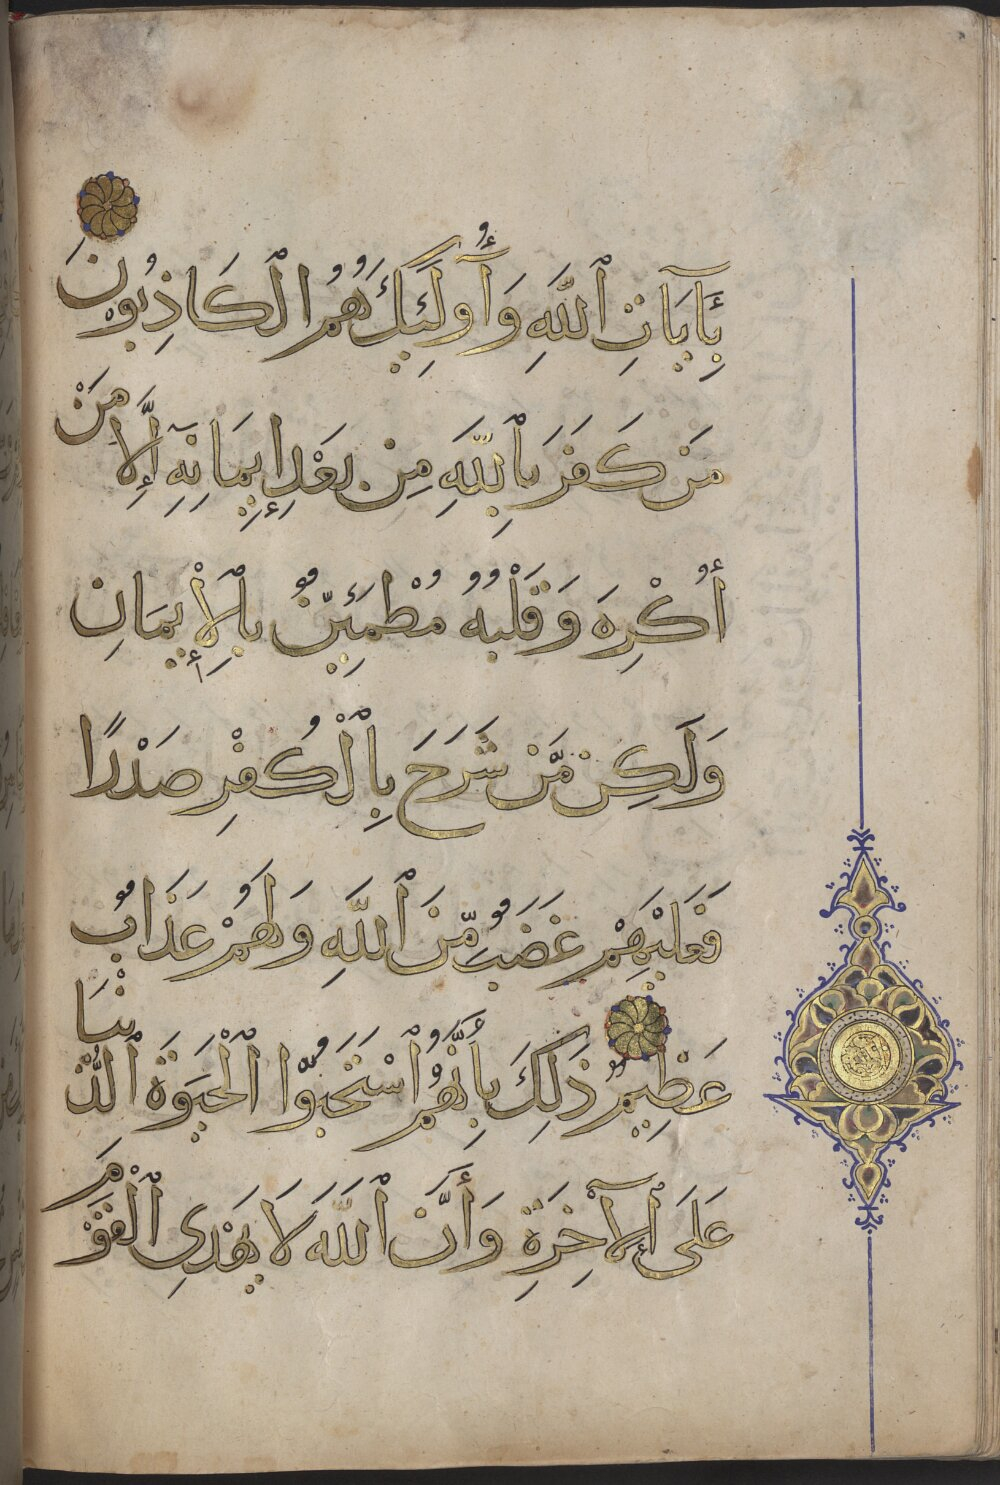 بِـَٔايَاتِ ٱللَّهِ وَأُو۟لَٰٓئِكَ هُمُ ٱلْكَاذِبُونَ
مَن كَفَرَ بِٱللَّهِ مِنۢ بَعْدِ إِيمَانِهِۦٓ إِلَّا مَنْ
أُكْرِهَ وَقَلْبُهُۥ مُطْمَئِنٌّۢ بِٱلْإِيمَانِ
وَلَٰكِن مَّن شَرَحَ بِٱلْكُفْرِ صَدْرًا
فَعَلَيْهِمْ غَضَبٌ مِّنَ ٱللَّهِ وَلَهُمْ عَذَابٌ
عَظِيمٌ ذَٰلِكَ بِأَنَّهُمُ ٱسْتَحَبُّوا۟ ٱلْحَيَوٰةَ ٱلدُّنْيَا
عَلَى ٱلْآخِرَةِ وَأَنَّ ٱللَّهَ لَا يَهْدِى ٱلْقَوْمَ